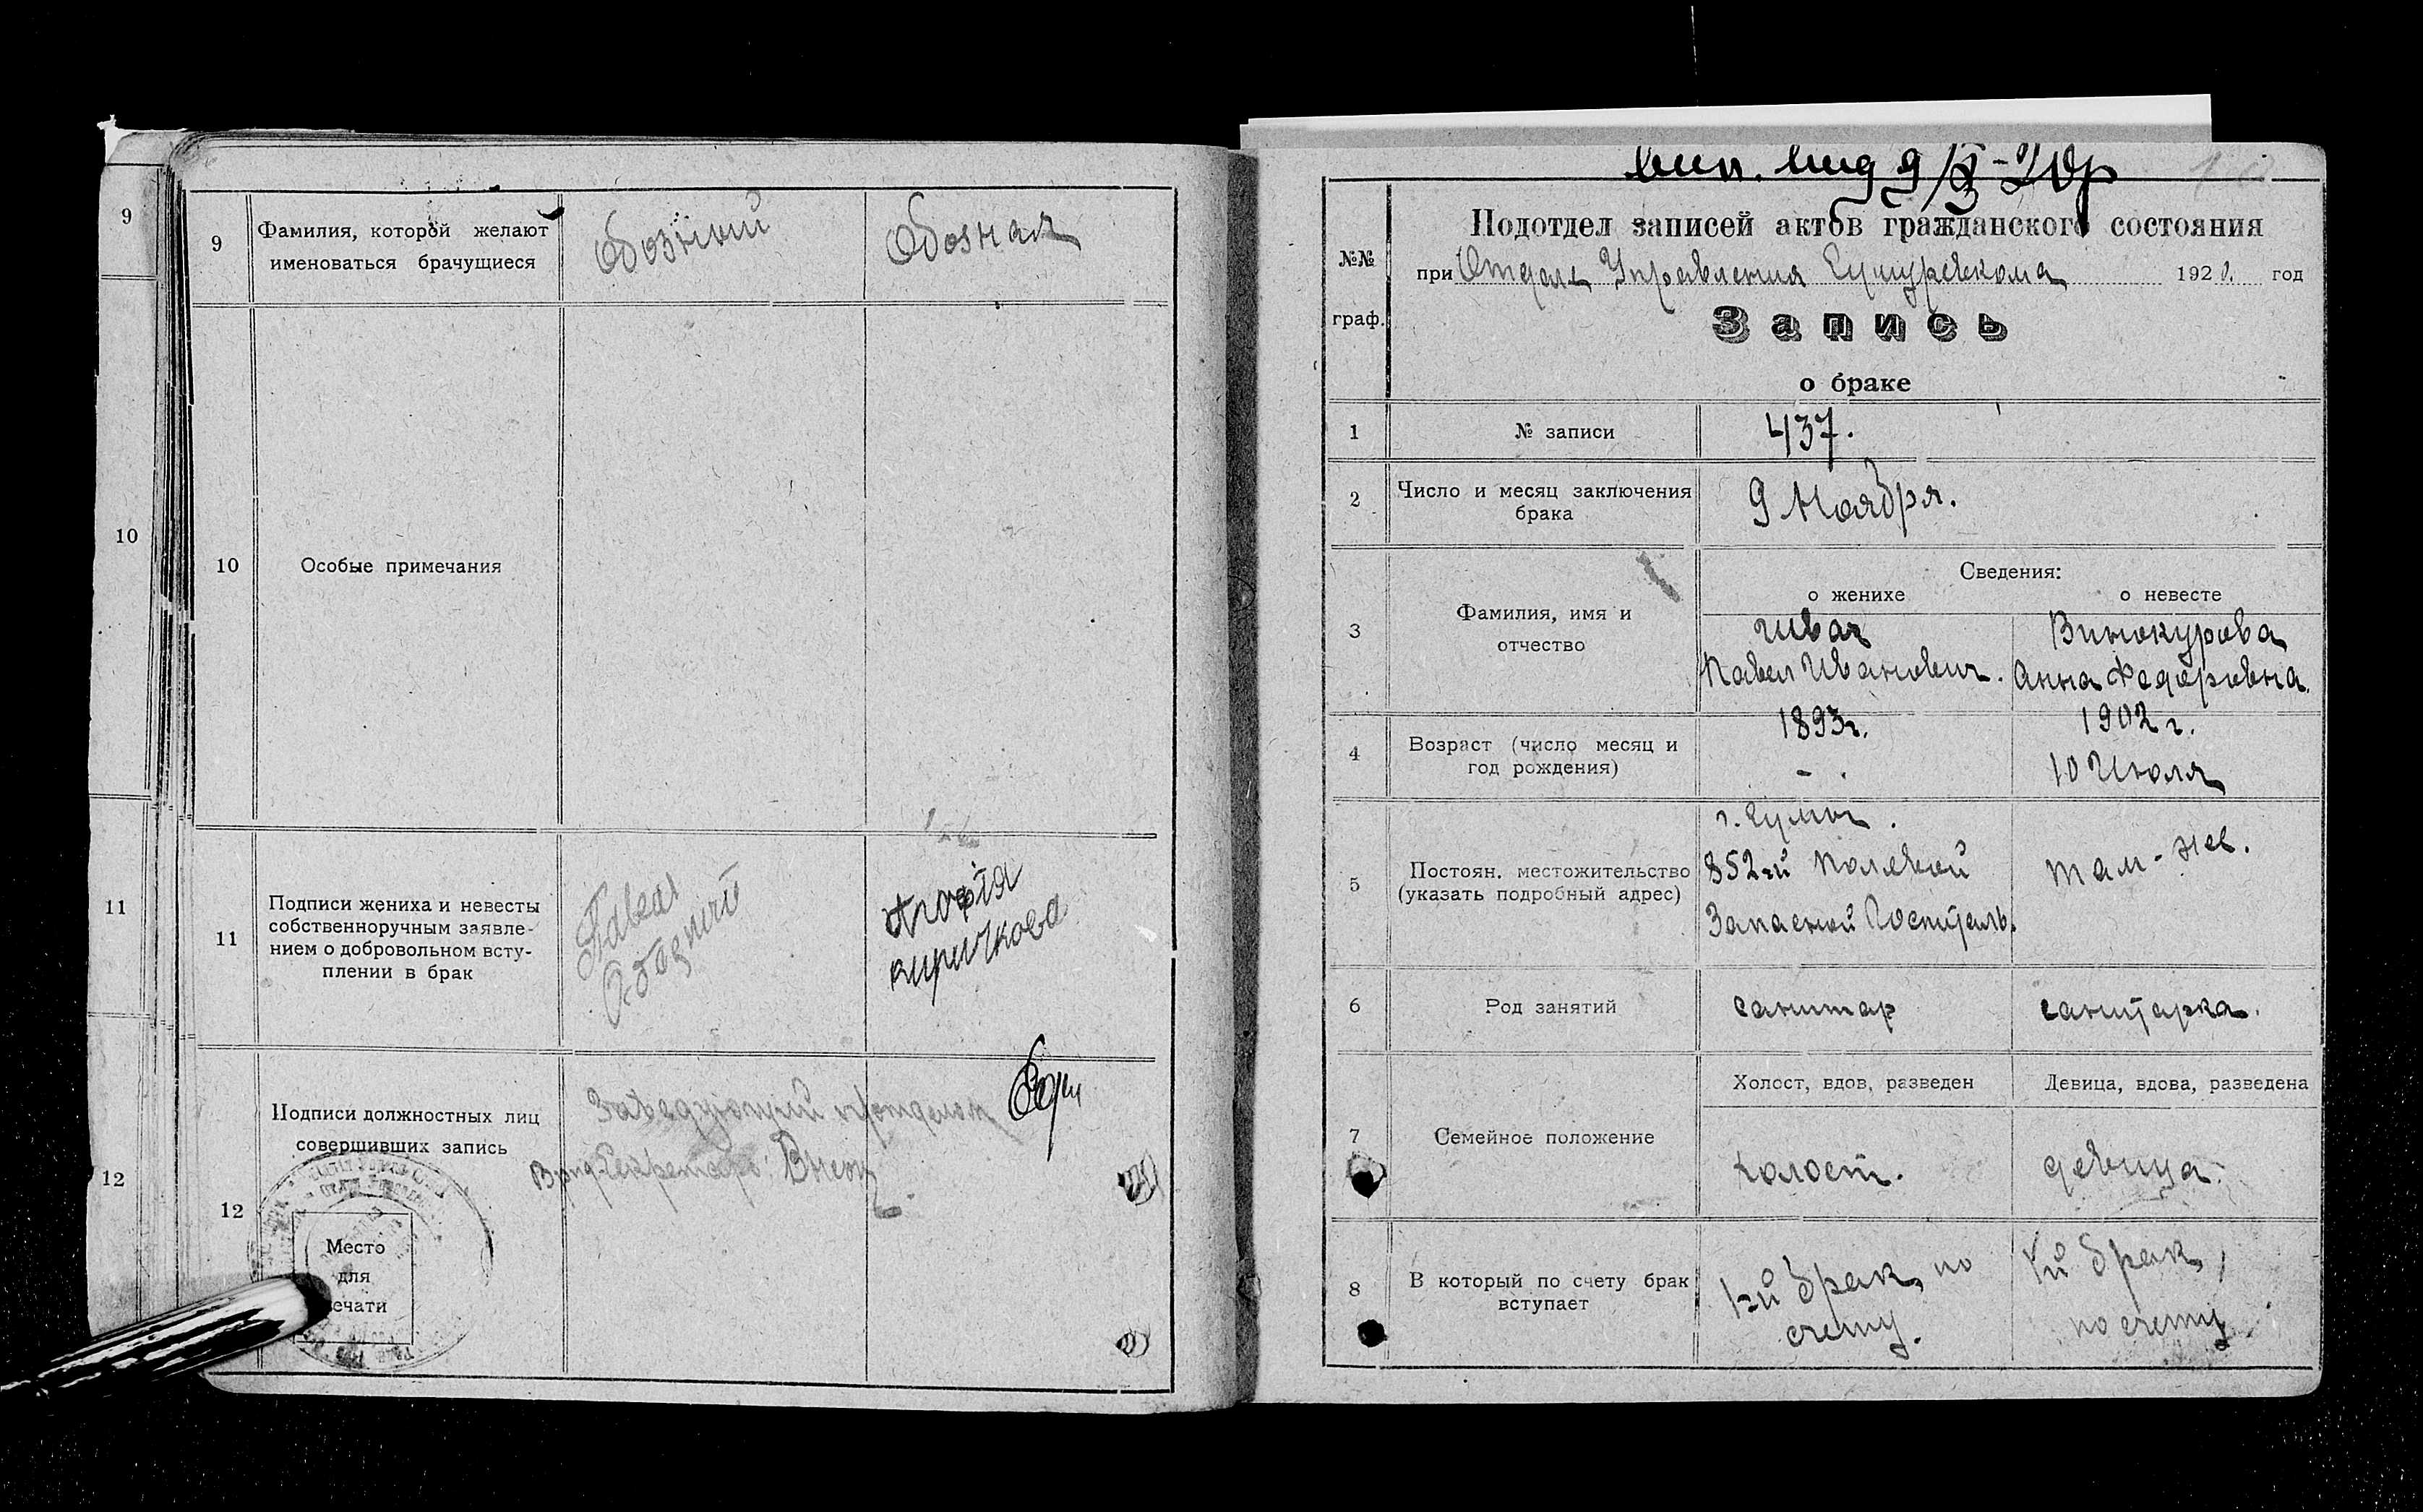 9
10
11
12
9
Фамилия, которой желают
именоваться брачущиеся
Обозный
Обозная
10
Особые примечания
11
Подписи жениха и невесты
собственноручным заявле-
нием о добровольном всту-
плении в брак
Павел
Обозный
Киричкова
12
Подписи должностных лиц
совершивших запись
Заведующий
Секретарь:
Место
для
печати
9
№№
граф.
Подотдел записей актов гражданского состояния
при Отделе Управления 1920. год
Запись
о браке
1
№ записи
437.
2
Число и месяц заключения
брака
9 Ноября.
3
Фамилия, имя и
отчество
Сведения:
о женихе
о невесте
Швач
Павел Иванович.
Винокурова
Анна Федоровна.
4
Возраст (число месяц и
год рождения)
1893 г.
-
1902 г.
10 Июля
5
Постоян. местожительство
(указать подробный адрес)
г. Сумы.
852-й Полевой
Запасной Госпиталь.
там-же.
6
Род занятий
санитар
санитарка.
7
Семейное положение
Холост, вдов, разведен
Девица, вдова, разведена
холост.
девица.
8
В который по счету брак
вступает
1-й брак, по
счету.
1й брак,
по счету